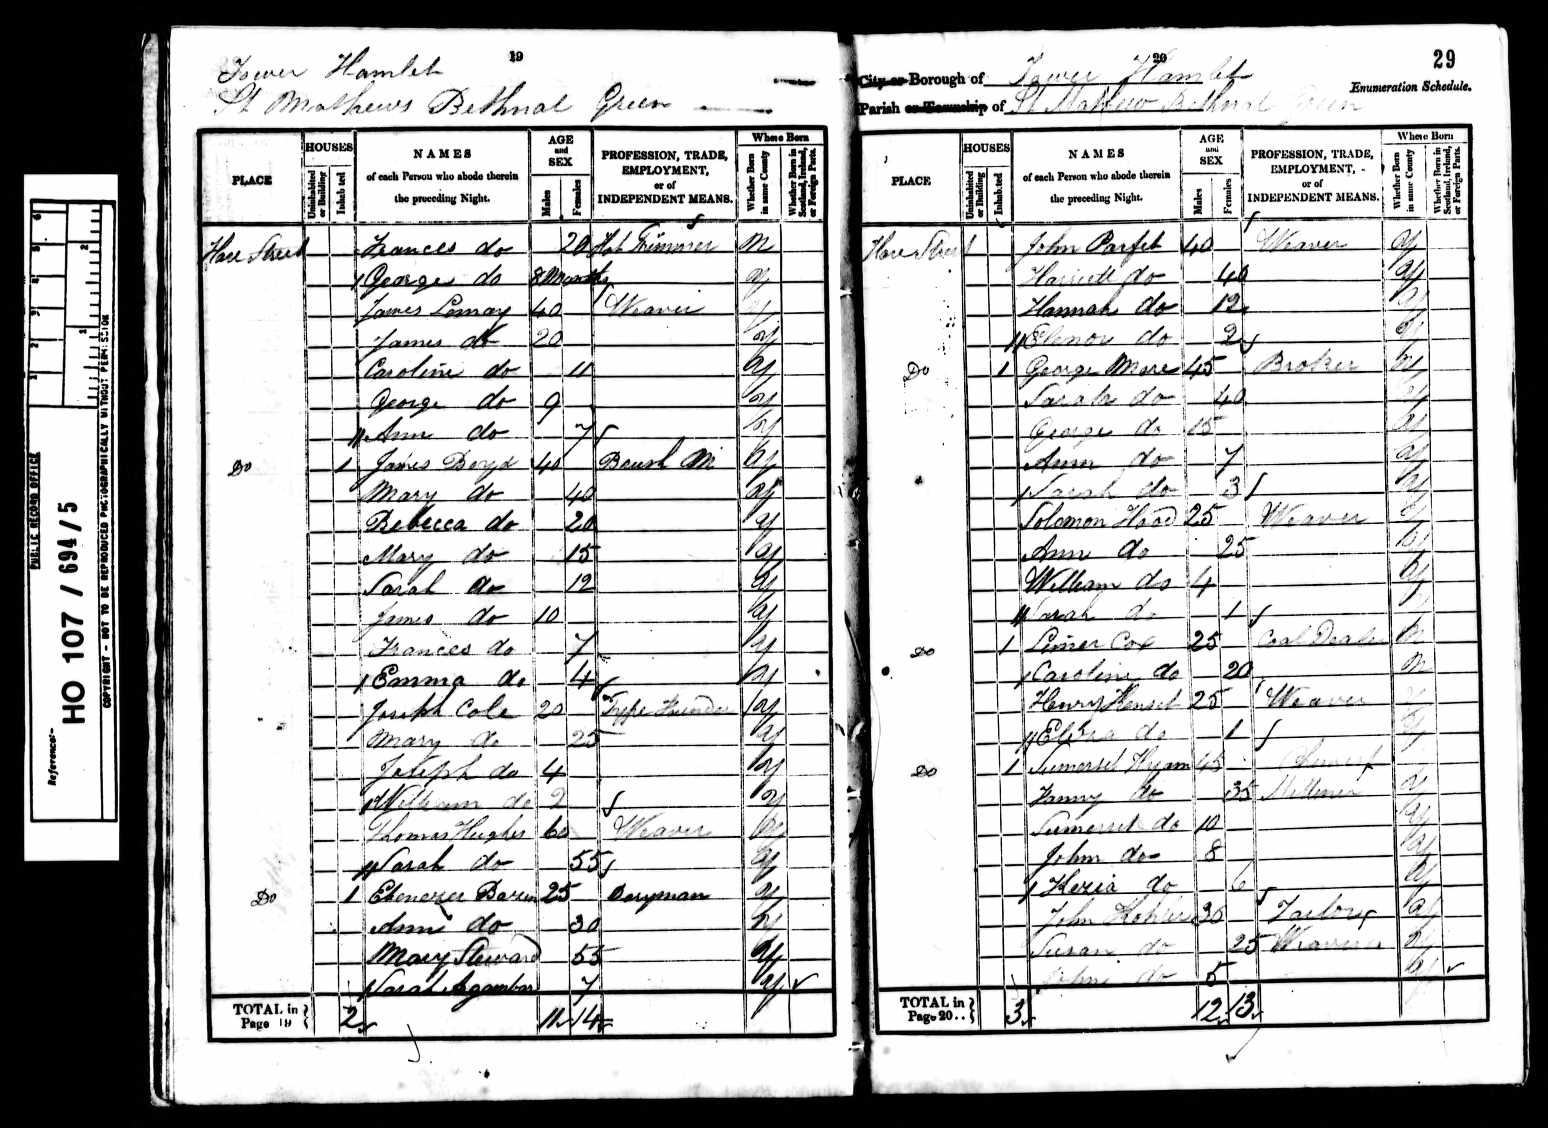 PUBLIC RECORD OFFICE
Reference:-
HO 107 / 694 / 5
COPYRIGHT - NOT TO BE REPRODUCED PHOTOGRAPHICALLY WITHOUT PERMISSION
19
Tower Hamlet
St Mathews Bethnal Green
PLACE
HOUSES
Uninhabited or Building
Inhabited
NAMES
of each Person who abode therein
the preceding Night.
AGE and SEX
Males
Females
PROFESSION, TRADE,
EMPLOYMENT,
or of
INDEPENDENT MEANS.
Where Born
Whether Born in same County
Whether Born in Scotland, Ireland, or Foreign Parts.
Hare Street Frances do 20 Trimmer N
George do 8 Months y
James Lemay 40 Weaver y
James do 20 y
Caroline do 11 y
George do 9 y
Ann do 7 y
Do 1 James Boyd 40 Brush M y
Mary do 40 y
Rebecca do 20 y
Mary do 15 y
Sarah do 12 y
James do 10 y
Frances do 7 y
Emma do 4 y
Joseph Cole 20 Type Founder y
Mary do 25 y
Joseph do 4 y
William do 2 y
Thomas Hughes 60 Weaver y
Sarah do 55 y
Do 1 Ebenezer 25 Doryman y
Ann do 30 y
Mary Steward 55 y
Sarah 7 y
TOTAL in Page 19 2 11 14
20
29
City or Borough of Tower Hamlet
Enumeration Schedule.
Parish or Township of St Mathew Bethnal Green
PLACE
HOUSES
Uninhabited or Building
Inhabited
NAMES
of each Person who abode therein
the preceding Night.
AGE and SEX
Males
Females
PROFESSION, TRADE,
EMPLOYMENT,
or of
INDEPENDENT MEANS.
Where Born
Whether Born in same County
Whether Born in Scotland, Ireland, or Foreign Parts.
Hare Street John Parfet 40 Weaver y
Harriett do 40 y
Hannah do 12 y
Elenor do 2 y
Do 1 George More 45 Broker y
Sarah do 40 y
George do 15 y
Ann do 7 y
Sarah do 3 y
Solomon Hood 25 Weaver y
Ann do 25 y
William do 4 y
Sarah do 1 y
Do 1 Cox 25 Coal Dealer N
Caroline do 20 N
Henry 25 Weaver y
Eliza do 1 y
Do 1 Sumerset Hyam 45
Fanny do 35 Milliner y
Sumerset do 10 y
John do 8 y
Kezia do 6 y
John 30 Tailor y
Susan do 25 y
John do 5 y
TOTAL in Page 20 3 12 13